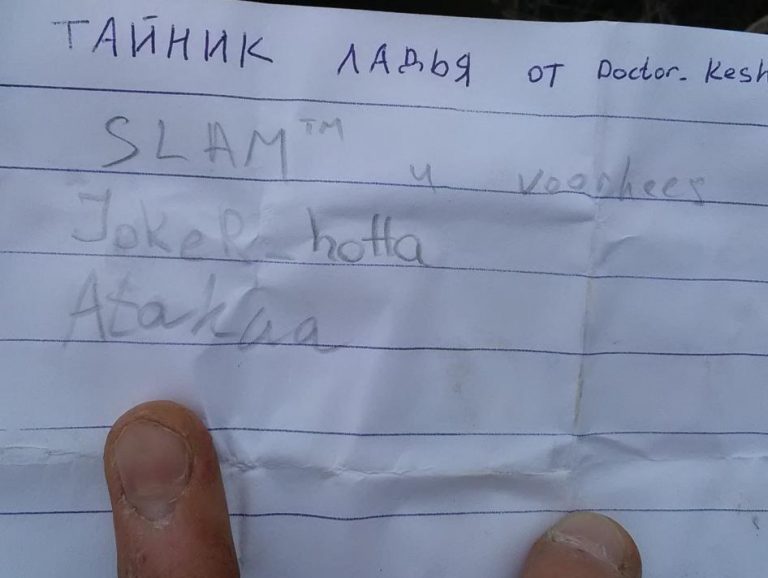 ТАЙНИК ЛАДЬЯ ОТ Doctor_Kesh
SLAM™ и voorhees
JokeR_hotta
Atakaa